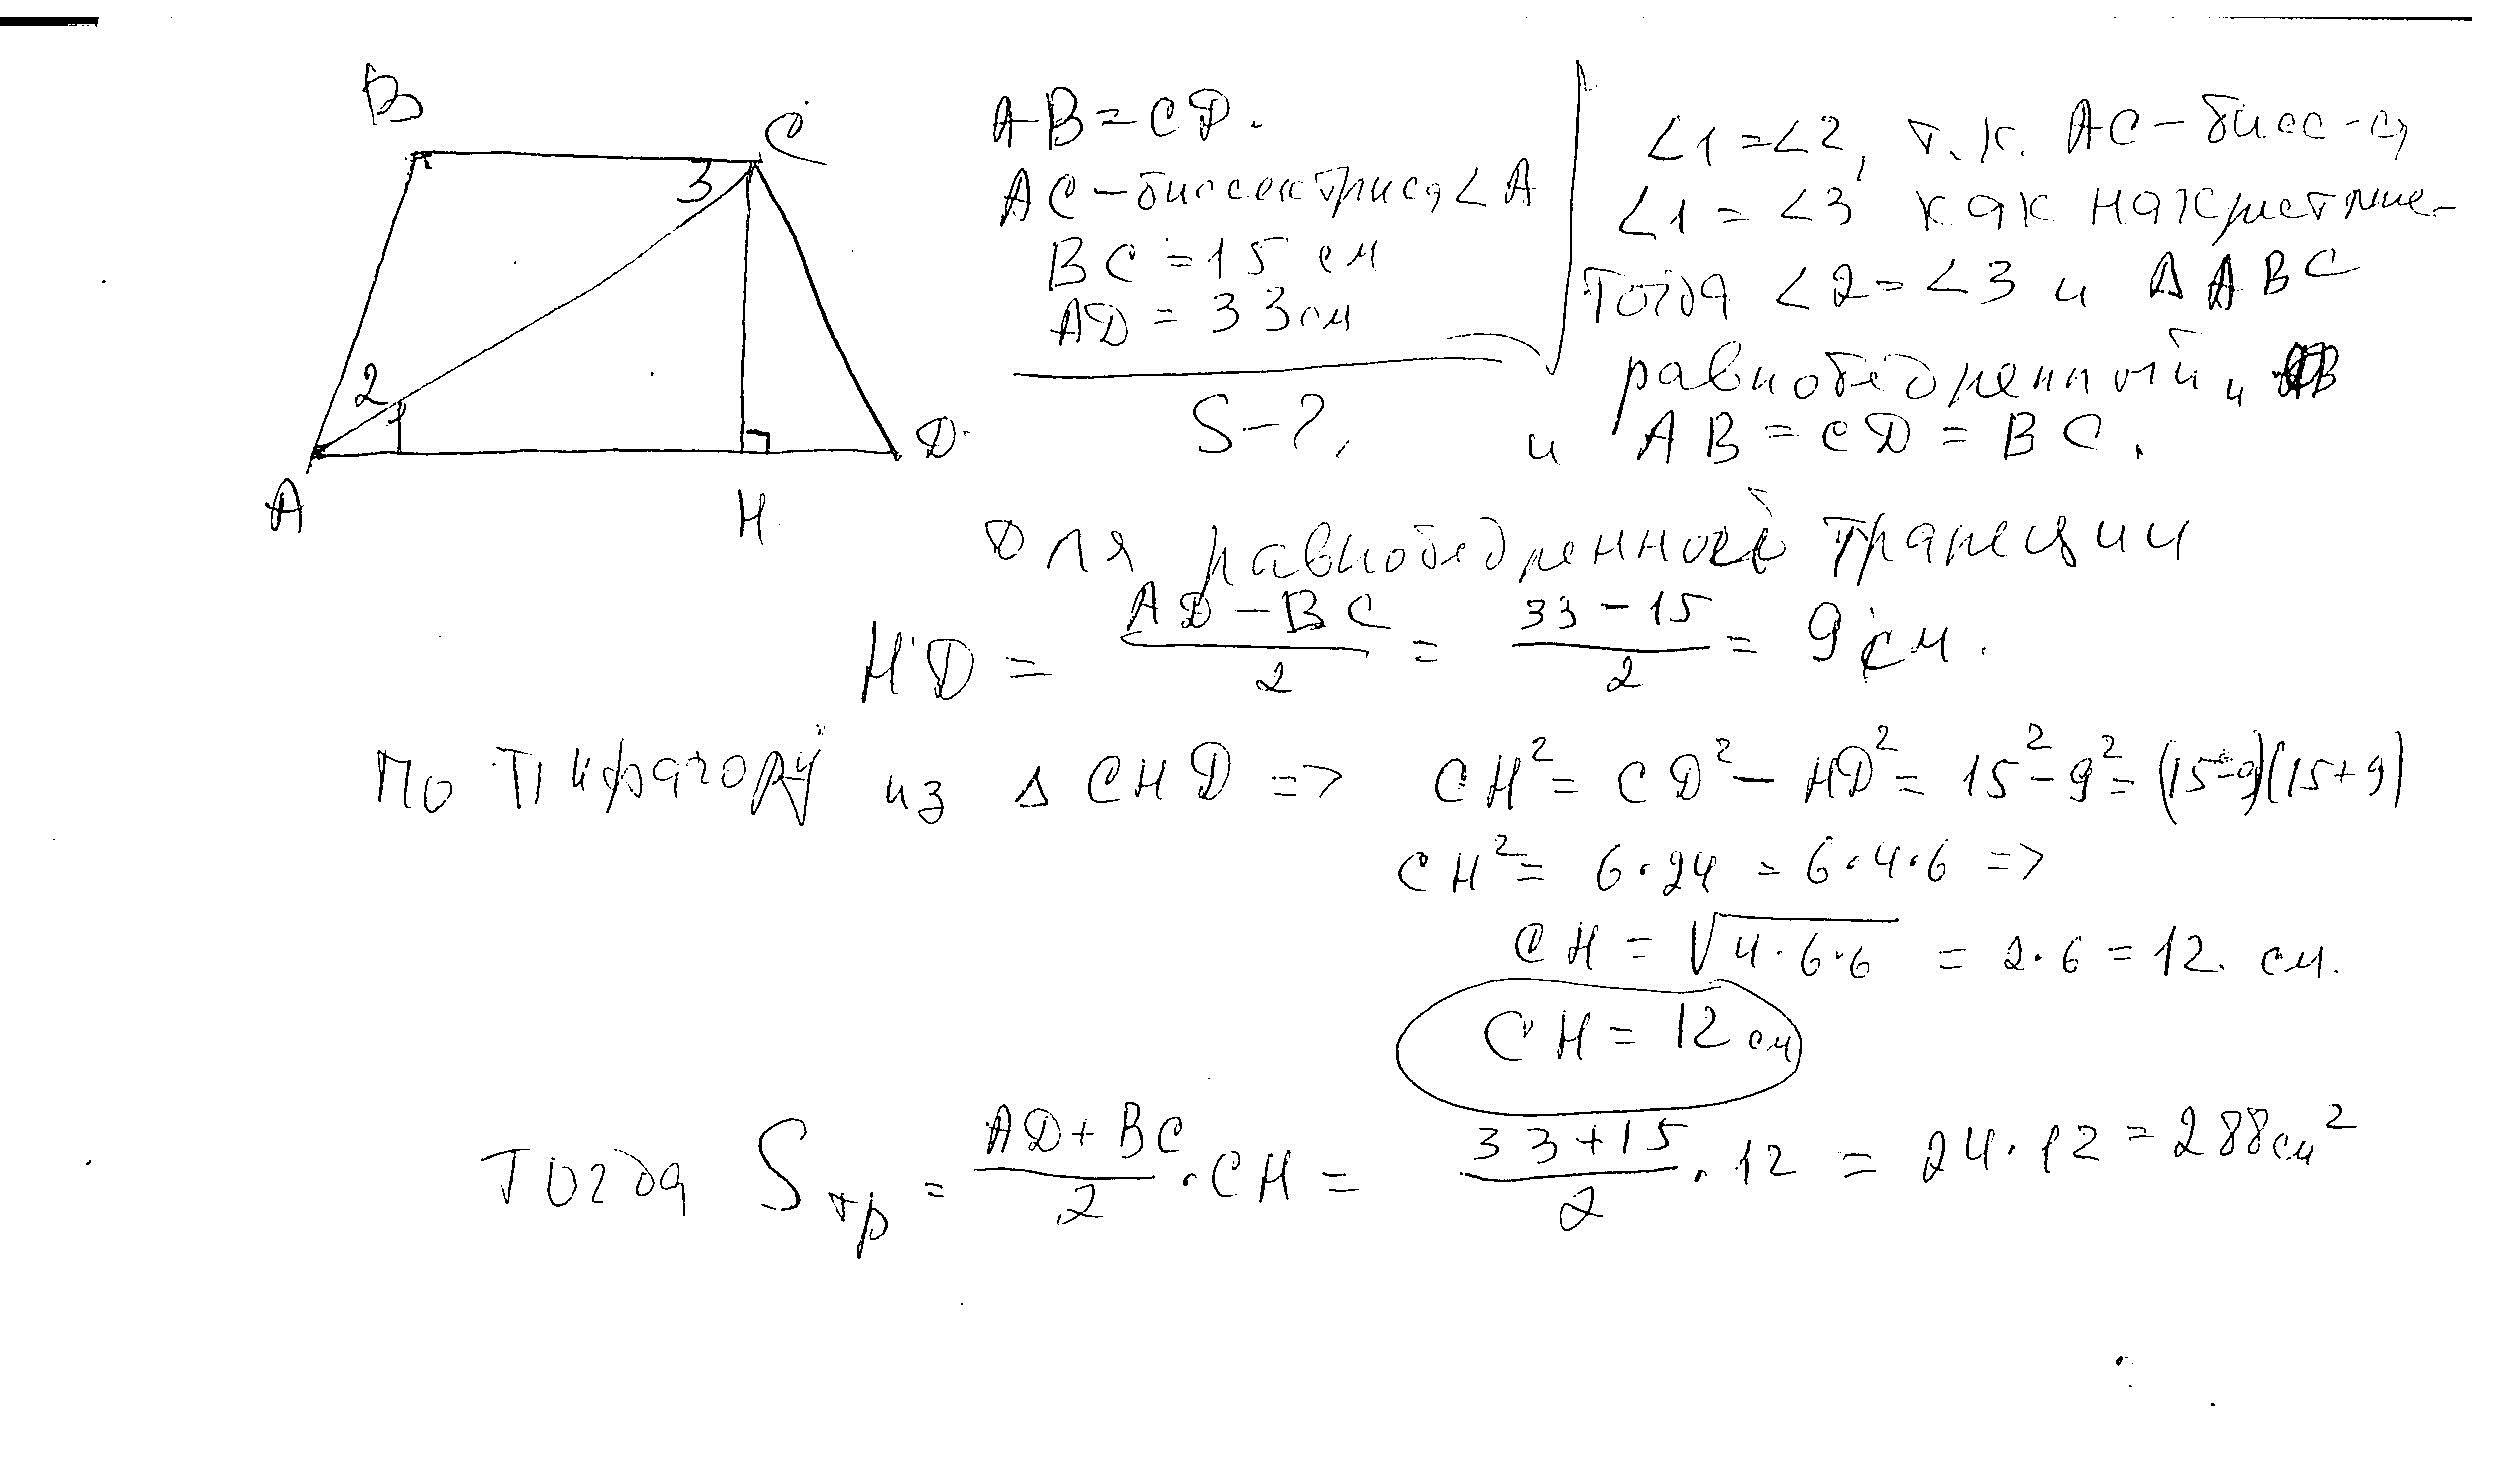 B
C
3
2
1
A
H
D
AB = CD.
AC – биссектриса ∠A
BC = 15 см
AD = 33 см
S – ?
∠1 = ∠2, т.к. AC – бисс-са
∠1 = ∠3 как накрест леж.
Тогда ∠2 = ∠3 и Δ ABC
равнобедренный и
и AB = CD = BC.
Для равнобедренной трапеции
HD = (AD – BC)/2 = (33 – 15)/2 = 9 см.
По Пифагору из Δ CHD => CH² = CD² – HD² = 15² – 9² = (15-9)(15+9)
CH² = 6·24 = 6·4·6 =>
CH = √(4·6·6) = 2·6 = 12 см.
CH = 12 см
Тогда Sтр = (AD + BC)/2 · CH = (33+15)/2 · 12 = 24·12 = 288 см²